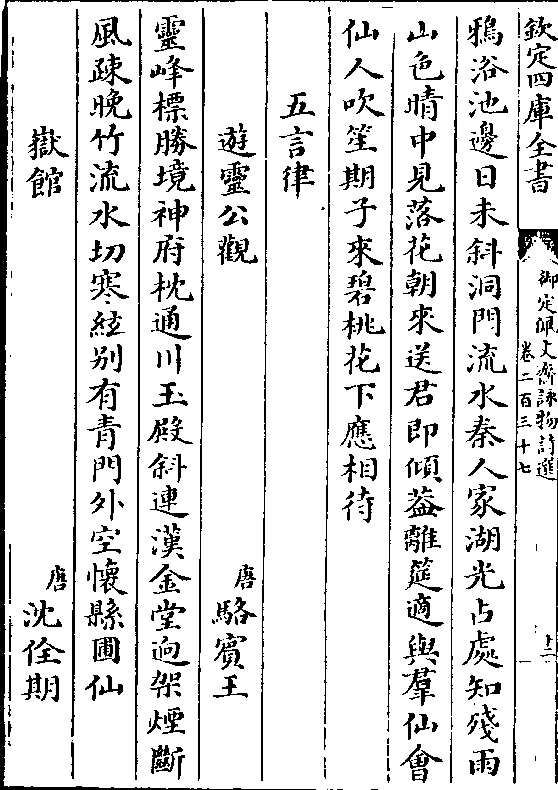 欽定四庫全書
御定佩文齋詠物詩選
卷二百三十七
鵶浴池邊日未斜洞門流水秦人家湖光占處知殘雨
山色晴中見落花朝來送君即傾葢離筵適與羣仙會
仙人吹笙期子來碧桃花下應相待
五言律
遊靈公觀
唐駱賓王
靈峰標勝境神府枕通川玉殿斜連漢金堂迥架煙斷
風疎晚竹流水切寒絃别有青門外空懷縣圃仙
嶽館
唐沈佺期